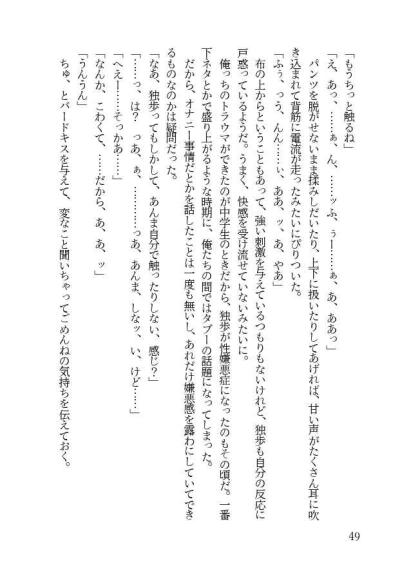 「もうちっと触るね」
「え、あっ、……ぁ、ん、……ッふ、ぅー……ぁ、あ、ああっ」
　パンツを脱がせないまま揉みしだいたり、上下に扱いたりしてあげれば、甘い声がたくさん耳に吹
き込まれて背筋に電流が走ったみたいにぴりついた。
「ふぅ、っう、んん……ぃ、ああ、ッ、あ、やあ」
　布の上からということもあって、強い刺激を与えているつもりもないけれど、独歩も自分の反応に
戸惑っているようだ。うまく、快感を受け流せていないみたいに。
　俺っちのトラウマができたのが中学生のときだから、独歩が性嫌悪症になったのもその頃だ。一番
下ネタとかで盛り上がるような時期に、俺たちの間ではタブーの話題になってしまった。
　だから、オナニー事情だとかを話したことは一度も無いし、あれだけ嫌悪感を露わにしていてでき
るものなのかは疑問だった。
「なあ、独歩ってもしかして、あんま自分で触ったりしない、感じ？」
「……っ、は？　っあ、ぁ、…………っあ、あんま、しなッ、い、けど……」
「へえー……そっかあ……」
「なんか、こわくて、……だから、あ、あ、ッ」
「うんうん」
　ちゅ、とバードキスを与えて、変なこと聞いちゃってごめんねの気持ちを伝えておく。
49